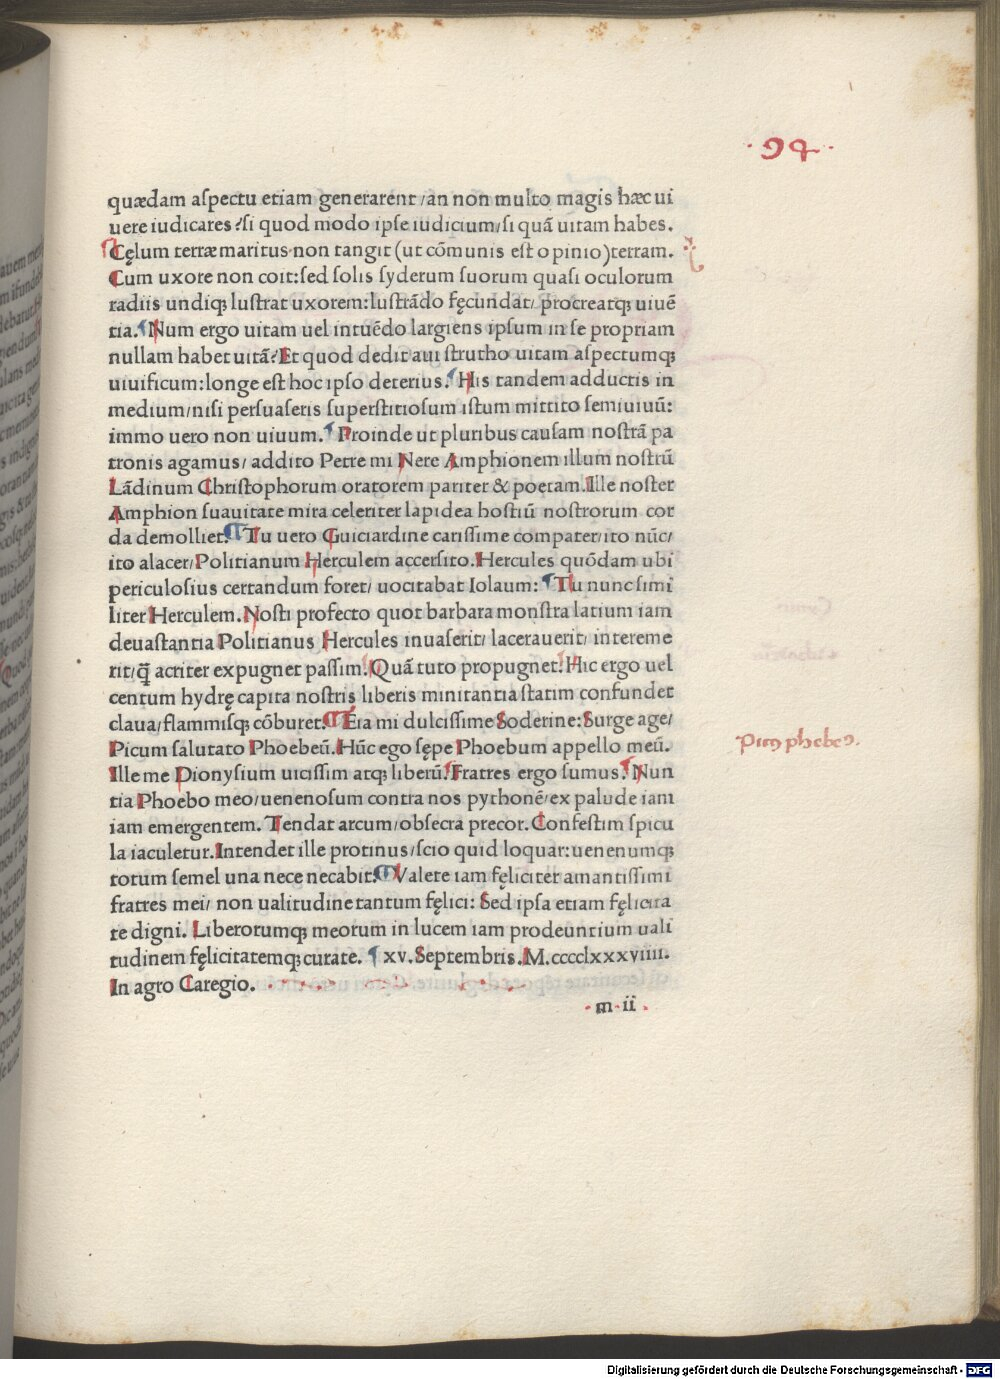 ·94·
quædam aſpectu etiam generarent/an non multo magis hæc ui
uere iudicares?ſi quod modo ipſe iudicium/ſi quā uitam habes.
Cęlum terræ maritus non tangit (ut cōmunis eſt opinio)terram.
Cum uxore non coit:ſed ſolis ſyderum ſuorum quaſi oculorum
radiis undiqꝫ luſtrat uxorem:luſtrādo fęcundat/ procreatqꝫ uiuē
tia. Num ergo uitam uel intuēdo largiens ipſum in ſe propriam
nullam habet uitā?Et quod dedit aui ſtrutho uitam aſpectumqꝫ
uiuificum:longe eſt hoc ipſo deterius. His tandem adductis in
medium/niſi perſuaſeris ſuperſtitioſum iſtum mittito ſemiuiuū:
immo uero non uiuum. Proinde ut pluribus cauſam noſtrā pa
tronis agamus/ addito Petre mi Nere Amphionem illum noſtrū
Lādinum Chriſtophorum oratorem pariter & poetam.Ille noſter
Amphion ſuauitate mira celeriter lapidea hoſtiū noſtrorum cor
da demolliet. Tu uero Guiciardine cariſſime compater/ito nūc/
ito alacer/Politianum Herculem accerſito.Hercules quōdam ubi
periculoſius certandum foret/ uocitabat Iolaum: Tu nunc ſimi
liter Herculem. Noſti profecto quot barbara monſtra latium iam
deuaſtantia Politianus Hercules inuaſerit/ lacerauerit/ intereme
rit/q̄ acriter expugnet paſſim. Quā tuto propugnet. Hic ergo uel
centum hydrę capita noſtris liberis minitantia ſtatim confundet
claua/flammiſqꝫ cōburet. Eia mi dulciſſime Soderine:Surge age/
Picum ſalutato Phoebeū.Hūc ego ſępe Phoebum appello meū.
Ille me Dionyſium uiciſſim atqꝫ liberū.Fratres ergo ſumus. Nun
tia Phoebo meo/uenenoſum contra nos pythonē/ex palude iam
iam emergentem. Tendat arcum/obſecra precor.Confeſtim ſpicu
la iaculetur.Intendet ille protinus/ſcio quid loquar:uenenumqꝫ
totum ſemel una nece necabit. Valete iam fęliciter amantiſſimi
fratres mei/ non ualitudine tantum fęlici: Sed ipſa etiam fęlicita
te digni. Liberorumqꝫ meorum in lucem iam prodeuntium uali
tudinem fęlicitatemqꝫ curate. xv.Septembris.M.cccclxxxviiii.
In agro Caregio.
m ii
Digitalisierung gefördert durch die Deutsche Forschungsgemeinschaft - DFG